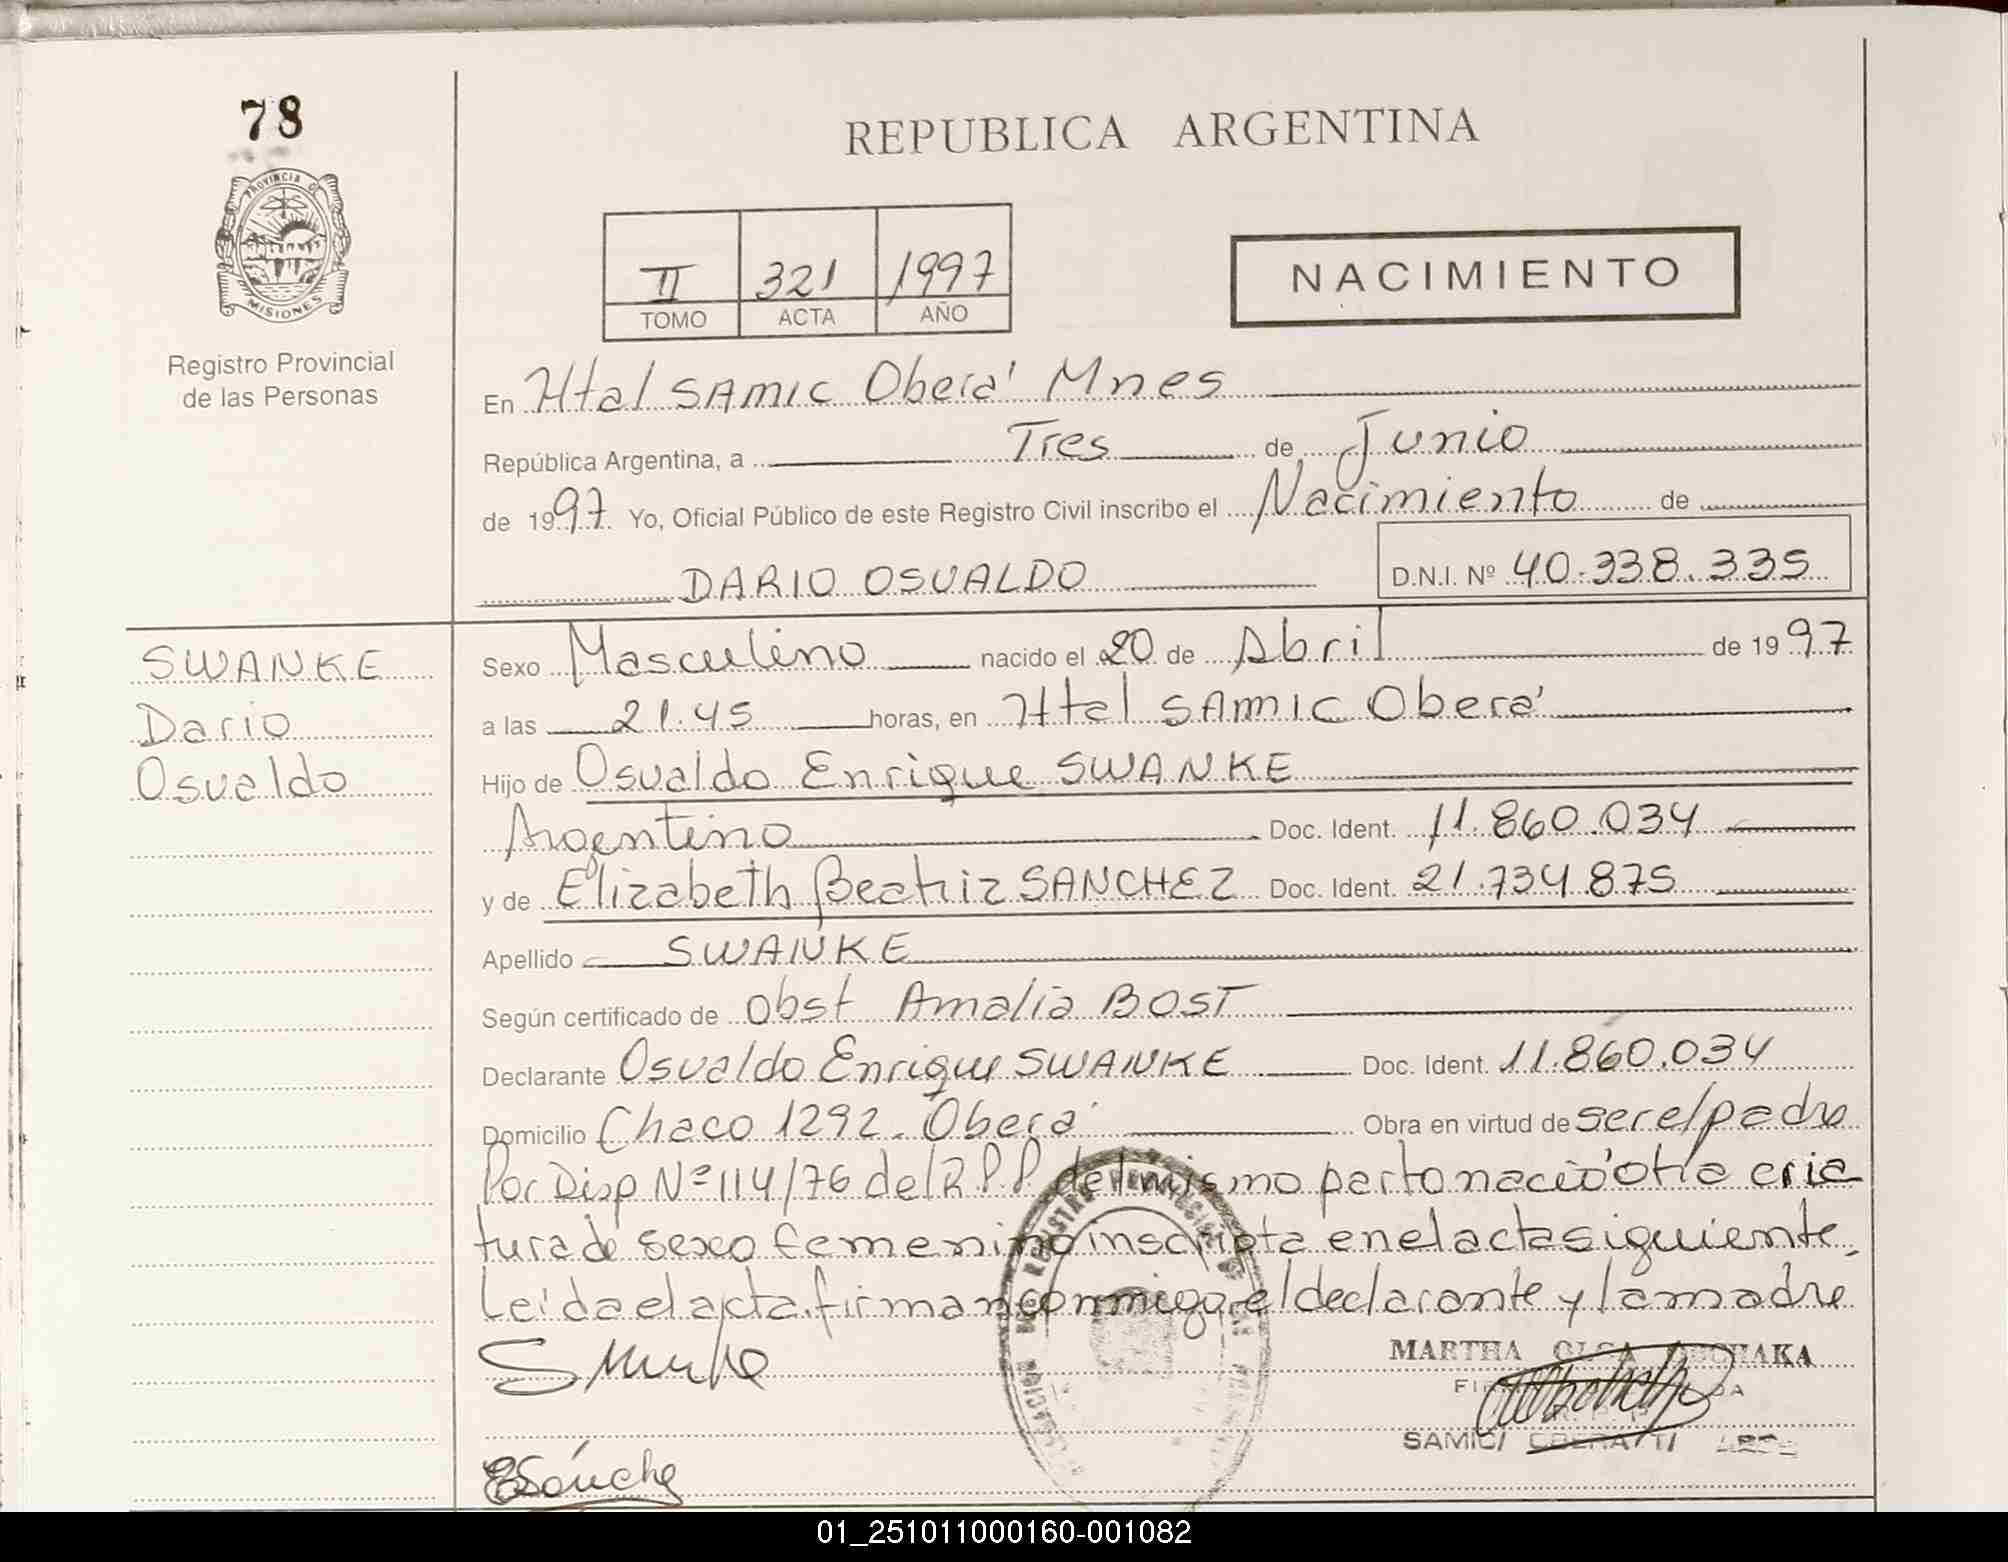 78
PROVINCIA D
MISIONES
Registro Provincial
de las Personas
REPUBLICA ARGENTINA
II 321 1997
TOMO ACTA AÑO
NACIMIENTO
En Htal SAMIC Oberá Mnes
República Argentina, a Tres de Junio
de 1997. Yo, Oficial Público de este Registro Civil inscribo el Nacimiento de
DARIO OSVALDO D.N.I. Nº 40.338.335
SWANKE
Dario
Osvaldo
Sexo Masculino nacido el 20 de Abril de 1997
a las 21.45 horas, en Htal SAMIC Oberá
Hijo de Osvaldo Enrique SWANKE
Argentino Doc. Ident. 11.860.034
y de Elizabeth Beatriz SANCHEZ Doc. Ident. 21.734.875
Apellido SWANKE
Según certificado de obst Amalia BOST
Declarante Osvaldo Enrique SWANKE Doc. Ident. 11.860.034
Domicilio Chaco 1292. Oberá Obra en virtud de ser el padre
Por Disp Nº 114/76 del R.P.P. del mismo parto nació otra cria
tura de sexo femenino inscripta en el acta siguiente.
Leída el acta firman conmigo el declarante y la madre
MARTHA OLGA
SAMIC
ESánche
01_251011000160-001082